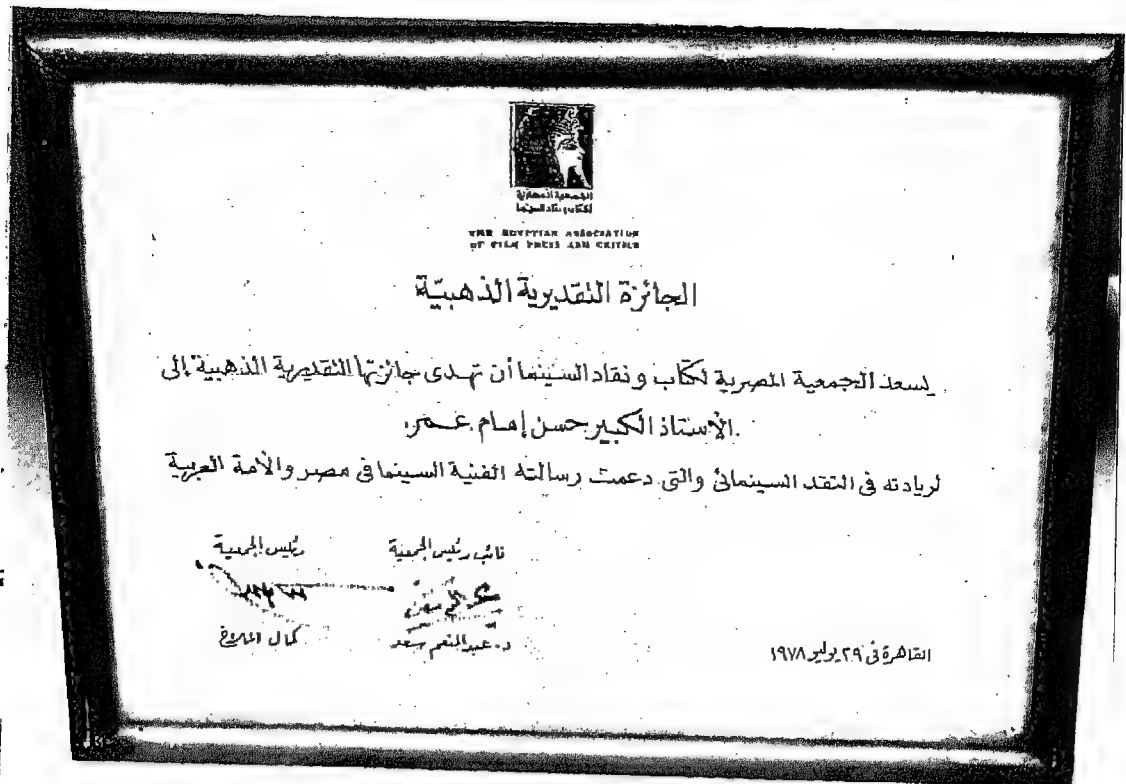 الجمعية المصرية
لكتاب ونقاد السينما
THE EGYPTIAN ASSOCIATION
OF FILM WRITERS AND CRITICS
الجائزة التقديرية الذهبيّة
يسعد الجمعية المصرية لكتاب و نقاد السينما أن تهدى جائزتها التقديرية الذهبية إلى
الأستاذ الكبير حسن إمام عمر
لريادته فى النقد السينمائى والتى دعمت رسالته الفنية السينما فى مصر والأمة العربية
نائب رئيس الجمعية
رئيس الجمعية
د. عبدالمنعم سعد
كمال الملاخ
القاهرة فى ٢٩ يوليو ١٩٧٨